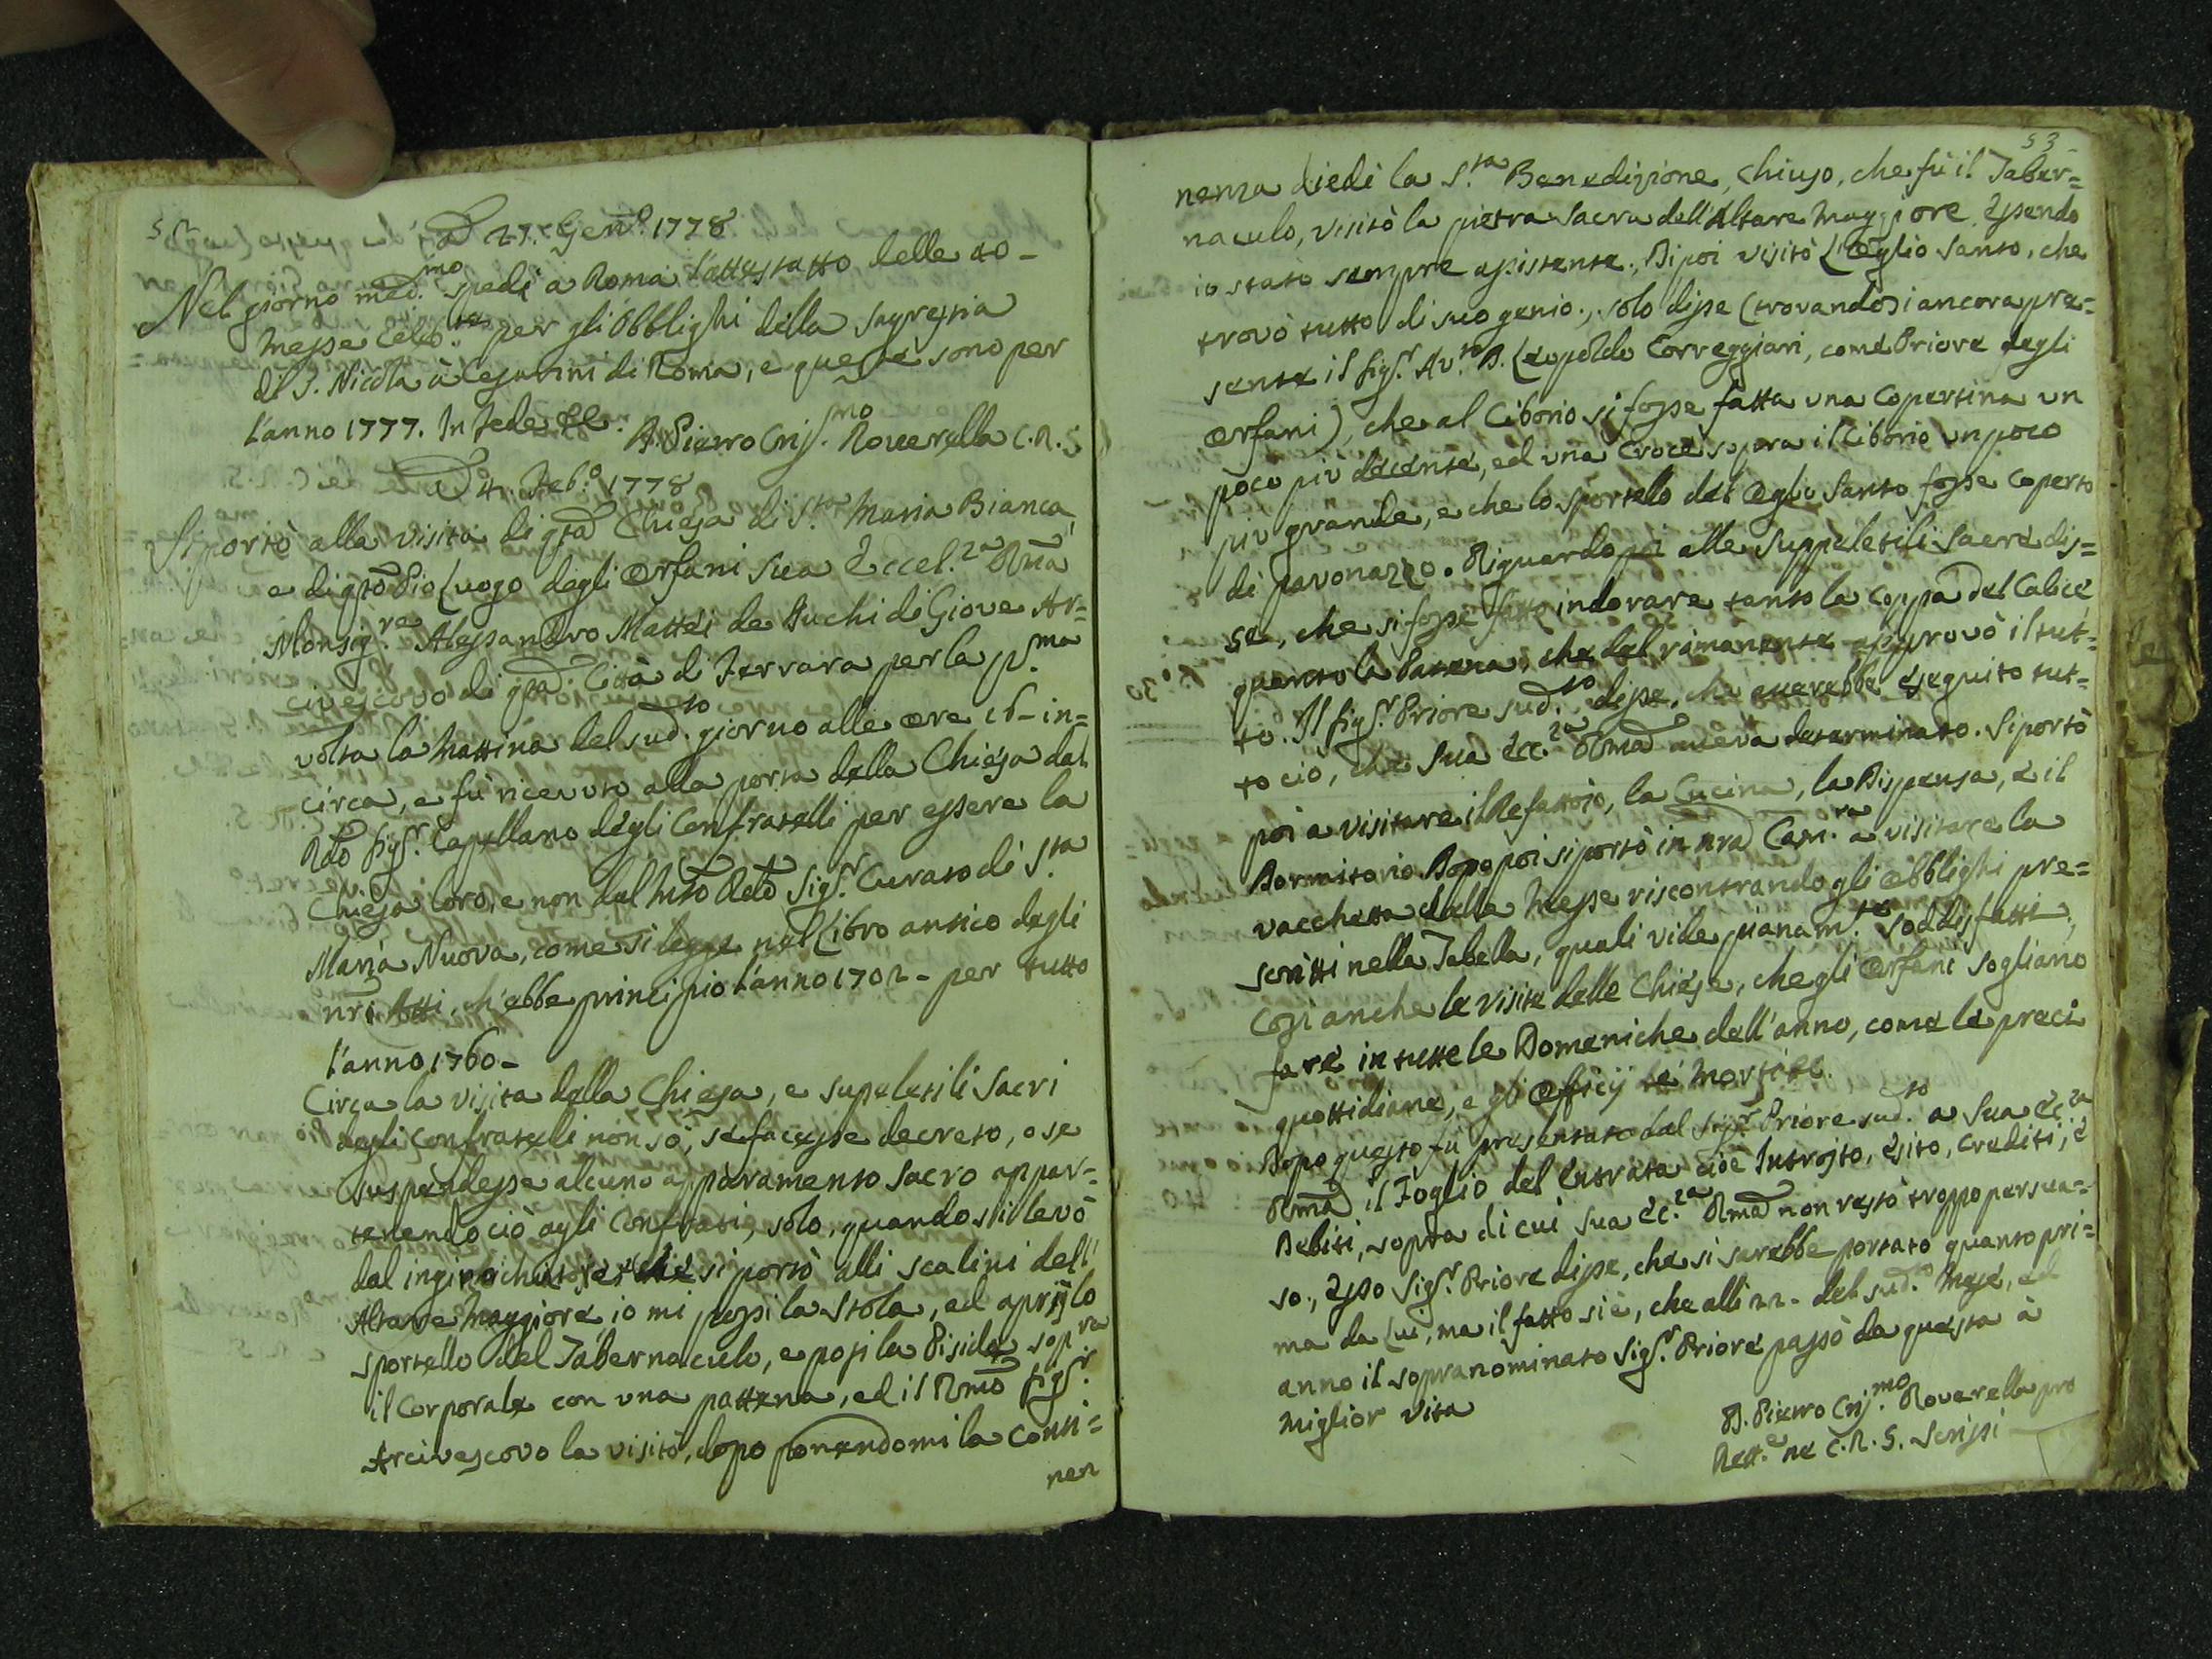 52
a 27. Gen.º 1778
Nel giorno med.mo spedi a Roma l'attestatto delle 40-
Messe Celeb.te per gli Obblighi della Sagrestia
di S. Nicola à Cesarini di Roma, e queste sono per
l'anno 1777. In fede &c.
D. Pietro Cris.mo Roverella C.R.S
A 4. Feb.º 1778
Si portò alla visita di qta Chiesa di S.ta Maria Bianca,
e di qto Pio Luogo degli Orfani Sua Eccel.za Rma
Monsig.re Alessandro Mattei de Duchi di Giove Ar=
civescovo di qta. Città di Ferrara per la p.ma
volta la Mattina del sud.to giorno alle ore 16- in=
circa, e fù ricevuto alla porta della Chiesa dal
Rdo Sigr. Capellano degli Confratelli per essere la
Chiesa loro, e non dal Mto Rdo Sigr. Curato di S.ta
Maria Nuova, come si legge nel Libro antico degli
nri Atti, ch'ebbe principio l'anno 1702- per tutto
l'anno 1760-
Circa la visita della Chiesa, e supeletili sacri
degli Confratelli non sò, se facesse decreto, o se
suspendesse alcuno apparamento sacro appar=
tenendo ciò agli Confrati, solo, quando si levò
dal inginochiatojo che si portò alli scalini dell'
Altare Maggiore io mi possi la stola, ed aprij lo
sportello del Tabernaculo, e posi la Piside sopra
il Corporale con una pattena, ed il Rmo Sigr.
Arcivescovo la visitò, dopo ponendomi la Conti=
nen
53
nenza diedi la S.ta Benedizione, chiuso, che fù il Taber=
naculo, visitò la pietra sacra dell'Altare Maggiore essendo
io stato sempre assistente. Dipoi visitò L'oglio santo, che
trovò tutto di suo genio., solo disse (trovandosi ancora pre=
sente il Sigr. Av.to D. Leopoldo Correggiari, come Priore degli
Orfani), che al Ciborio si fosse fatta una copertina un
poco più decente, ed una Croce sopra il Ciborio un poco
più grande, e che lo sportelo del oglio santo fosse coperto
di pavonazzo. Riguardo poi alle suppeletili sacre dis=
se, che si fosse fatto indorare tanto la coppa del Calice
quanto la Patena, che del rimanente approvò il tut=
to. Il Sigr. Priore sud.to disse, che averebbe eseguito tut=
to ciò, che Sua Ecc.za Rma aveva determinato. Si portò
poi a visitare il Refettorio, la Cucina, la Dispensa, e il
Dormitorio. Dopo poi si portò in nra Cam.ra a visitare la
vacchetta delle Messe riscontrando gli obblighi pre=
scritti nella Tabella, quali vide pianam.te soddisfatti,
così anche le visite delle Chiese, che gli Orfani sogliano
fare in tutte le Domeniche dell'anno, come le preci
quottidiane, e gli Officij de Morti &c.
Dopo questo fù presentato dal Sigr. Priore sud.to a Sua Ec.za
Rma il Foglio del Entrata cioè Introito, Esito, Crediti, e
Debiti, sopra di cui Sua Ec.za Rma non restò troppo persua=
so., Esso Sigr. Priore disse, che si sarebbe portato quanto pri=
ma da Lui, ma il fatto si è, che alli 22- del sud.to Mese, ed
anno il sopranominato Sigr. Priore passò da questa à
miglior vita
D. Pietro Cris.mo Roverella pro
Rett.e ne C.R.S. scrissi